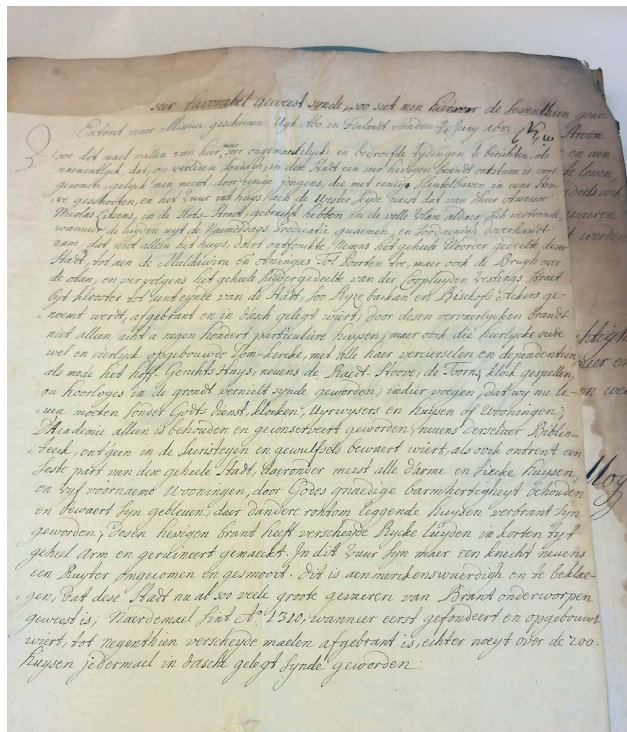 seer favorabel geweest synde, soo siet men hiervoor de seventhien geur
Extract uyt Abo in Finlandt vanden Juny 1681
Voor dit mael vallen van hier, seer ongemeenlycke en bedroefde tydingen te berichten, als
namentlyck, dat, op verleden Sondagh, in dese Stadt een seer hevigen brandt ontstaen is, voor
gecomen, gelyck men meent, door eenige jongens, die met eenige Sleutelbussen in eene
geschooten, en het vuur int huys nae de Wester syde naest dat van d'heer
Nicolas in de Slots-Straet, gebracht hebben, en de volle vlam aldaer sich verthoonde,
wanneer de luyden uyt de Naermiddags Predicatie quaemen, en soodaenich d'overhandt
nam, dat niet alleen het huys, daer't ontfonckte, neuens het geheele Noorder gedeelte deser
Stadt, tot aen de en Aningas Tol Poorten toe, maer ook de Brugh over
de Aan, en vervolgens het geheele Suydergedeelte van der Coopluyden Vestings Straet
byt klooster tot unt eynde van de Stadt, soo en Bischofs Ackers ge-
noemt werdt, afgebrant en in d'asch gelegt wiert; door desen vervaerlycken brandt
niet alleen acht a negen hondert particuliere huysen, maer oock die heerlycke oude
wel en cierlyck opgebouwde Dom-kercke, met alle haer vercierselen en dependentien
als mede het hoff Gerichts Huys, neuens de Raedt Stoove, de Toorns, klock gespellen
en hoorloges in de grondt vernielt synde geworden; indier voegen, dat wy nu le-
uen moeten sonder Godts dienst, klocken, Uyrwysers en Huysen of Wooningen;
D'Academie alleen is behouden en geconserveert geworden, neuens derselver Biblio-
teeck, en't geen in de en gewulfsels bewaert wiert, als oock ontrent een
seste part van dese geheele Stadt, daeronder meest alle d'arme en siecke Huysen
en vyf voornaeme Wooningen, door Godes genaedege barmhertigheyt behouden
en bewaert syn gebleuen, daer d'andere rontom leggende Huysen verbrant syn
geworden; Desen hevigen brant heeft verscheyde Rycke Luyden in korten tyt
geheel arm en geruineert gemaeckt. In dit vuur syn maer een knecht neuens
een Ruyter omgecomen en gesmoort. Dit is aenmerckenswaerdigh en te beklae-
gen, dat dese Stadt nu al soo veele groote gevaeren van Brant onderworpen
geweest is, Naerdemael sint Aº. 1310, wanneer eerst gefondeert en opgebouwt
wiert, tot negenthien verscheyde maelen afgebrant is, echter noeyt over de 200.
huysen jedermael in d'asche gelegt synde geworden.
Stroom
en aen
waeren
Moy